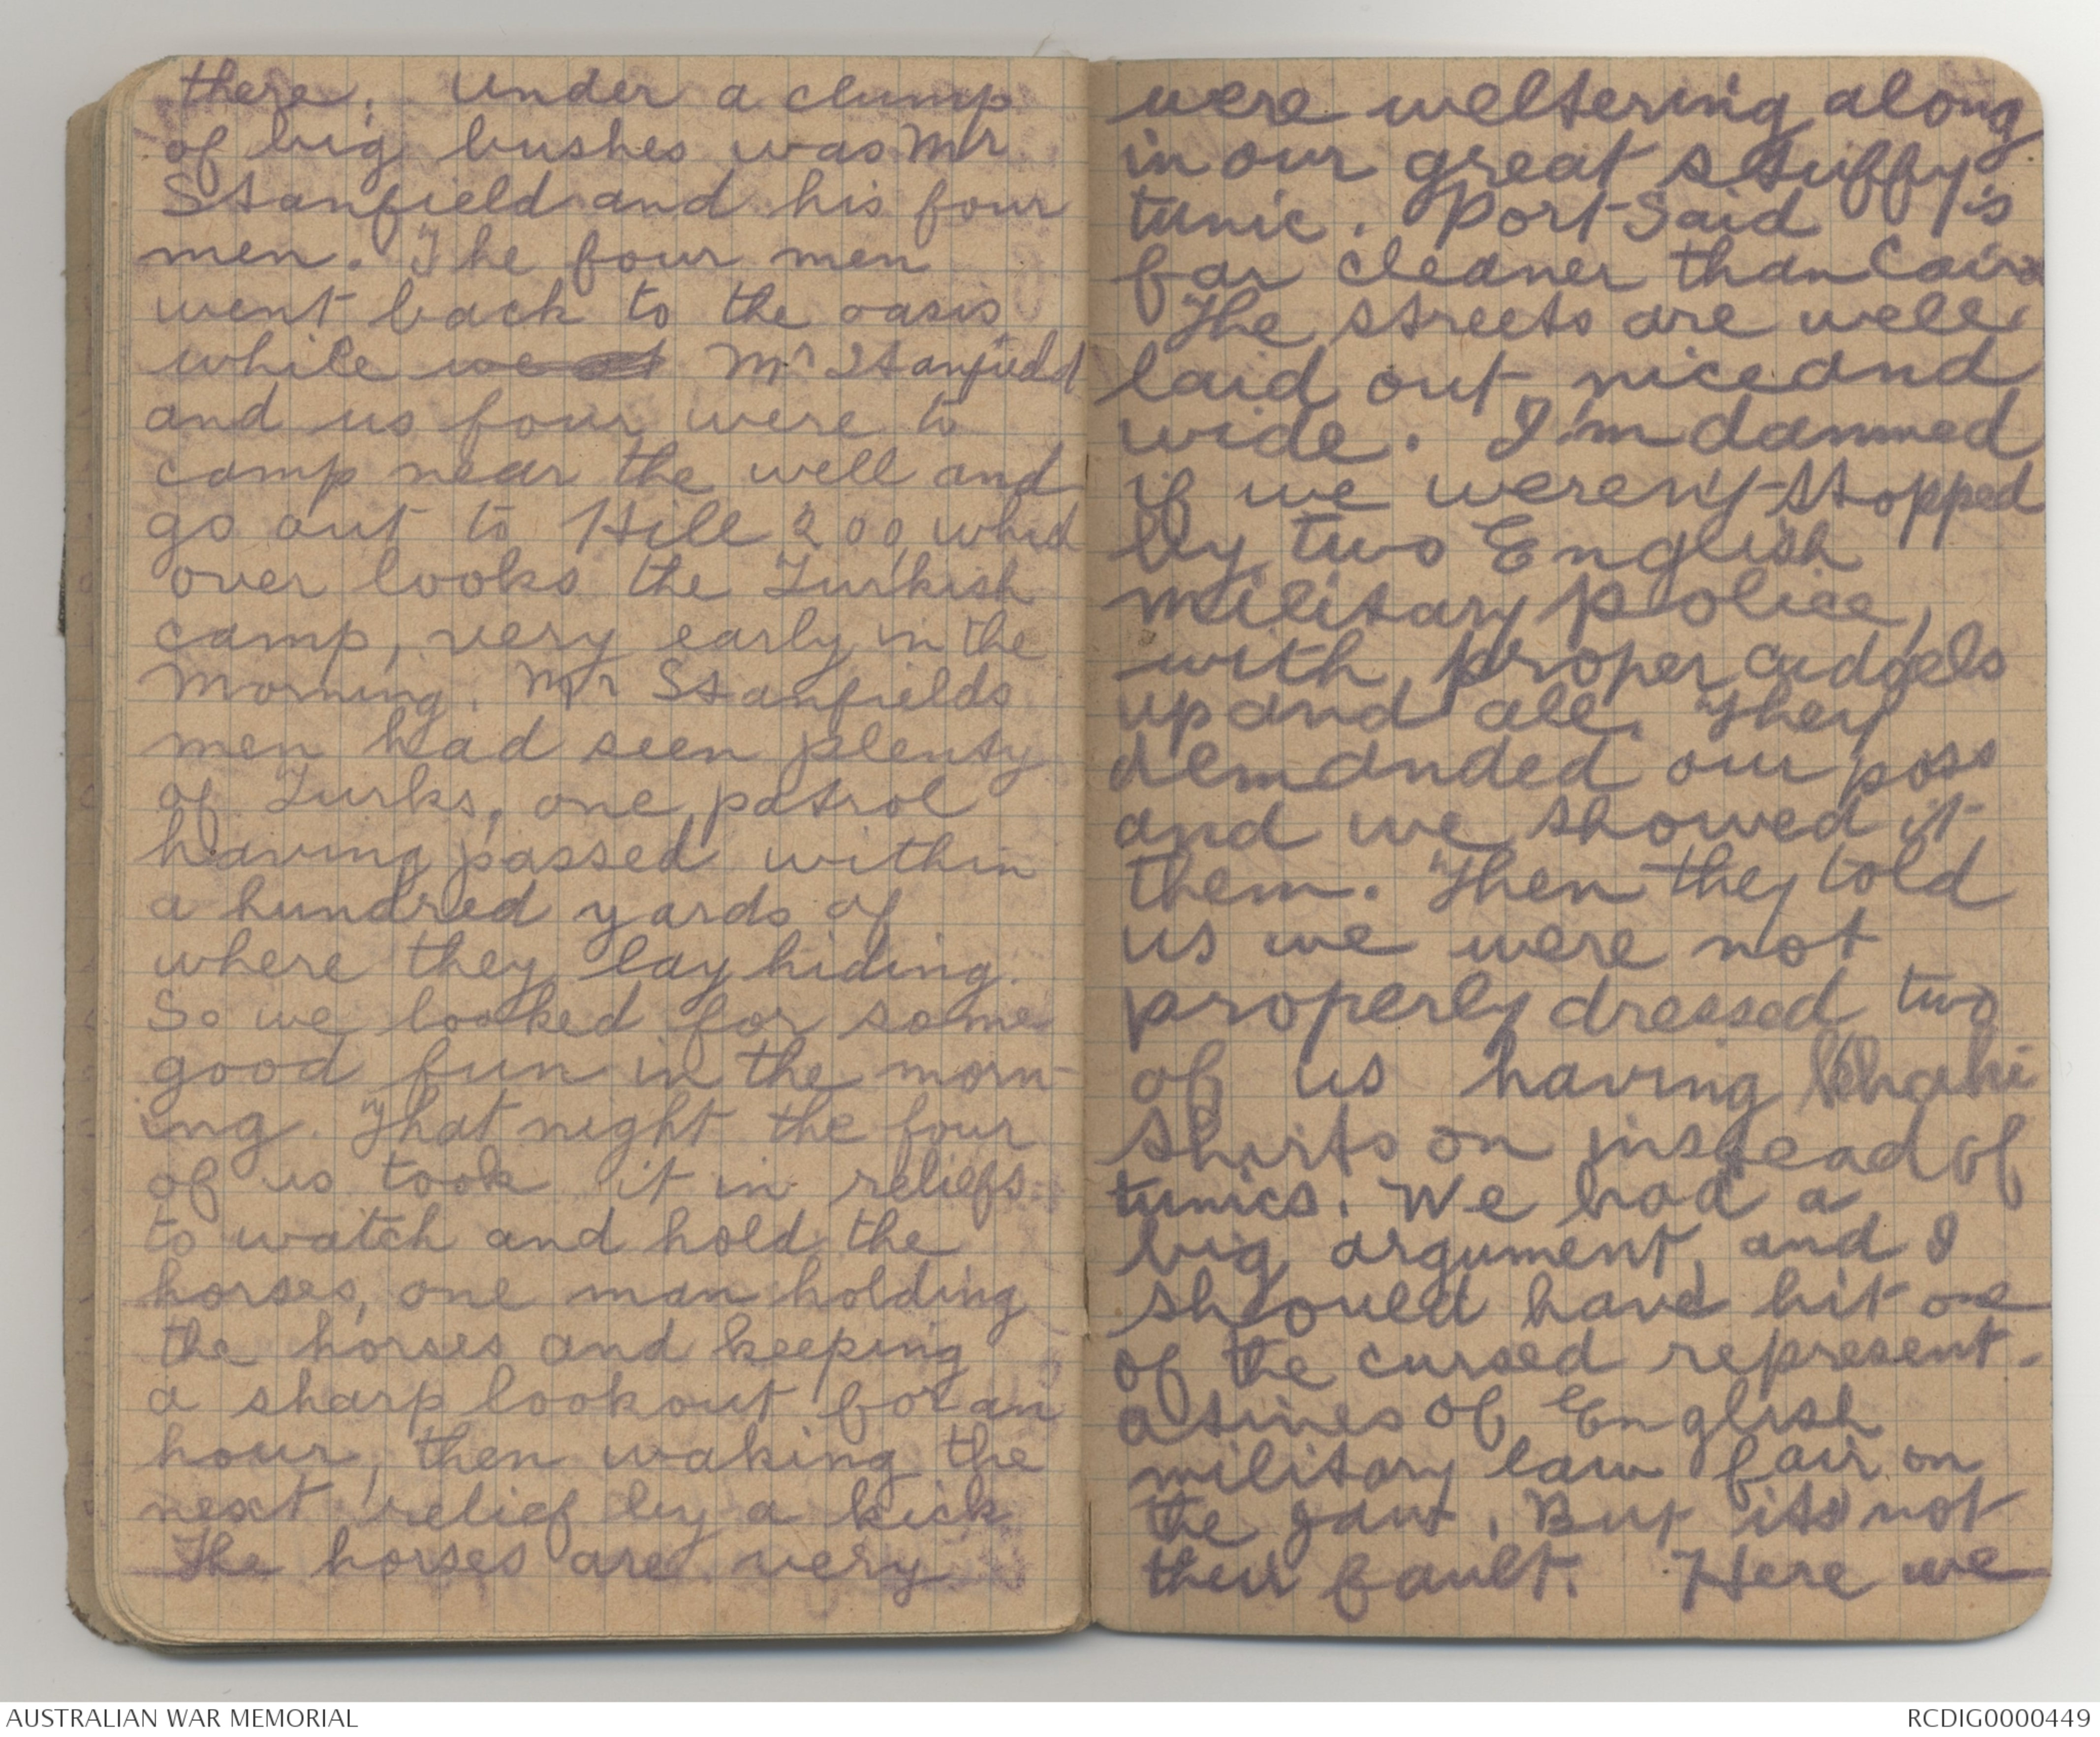 there. Under a clump
of big bushes was Mr
Stanfield and his four
men. The four men
went back to the oasis
while we Mr Stanfield
and us four were to
camp near the well and
go out to Hill 200, which
over looks the Turkish
camp, very early in the
morning. Mr Stanfields
men had seen plenty
of Turks, one patrol
having passed within
a hundred yards of
where they lay hiding.
So we looked for some
good fun in the morn-
ing. That night the four
of us took it in reliefs
to watch and hold the
horses, one man holding
the horses and keeping
a sharp lookout for an
hour, then waking the
next relief by a kick
The horses are very
were weltering along
in our great stuffy
tunic. Port Said is
far cleaner than Cairo
The streets are well
laid out, nice and
wide. I'm damned
if we weren't stopped
by two English
military police,
with proper cudgels
up and all. They
demanded our pass
and we showed it
them. Then they told
us we were not
properly dressed two
of us having khaki
shirts on instead of
tunics. We had a
big argument, and I
should have hit one
of the cursed represent-
atives of English
military law fair on
the jaw. But its not
their fault. Here we
AUSTRALIAN WAR MEMORIAL
RCDIG0000449